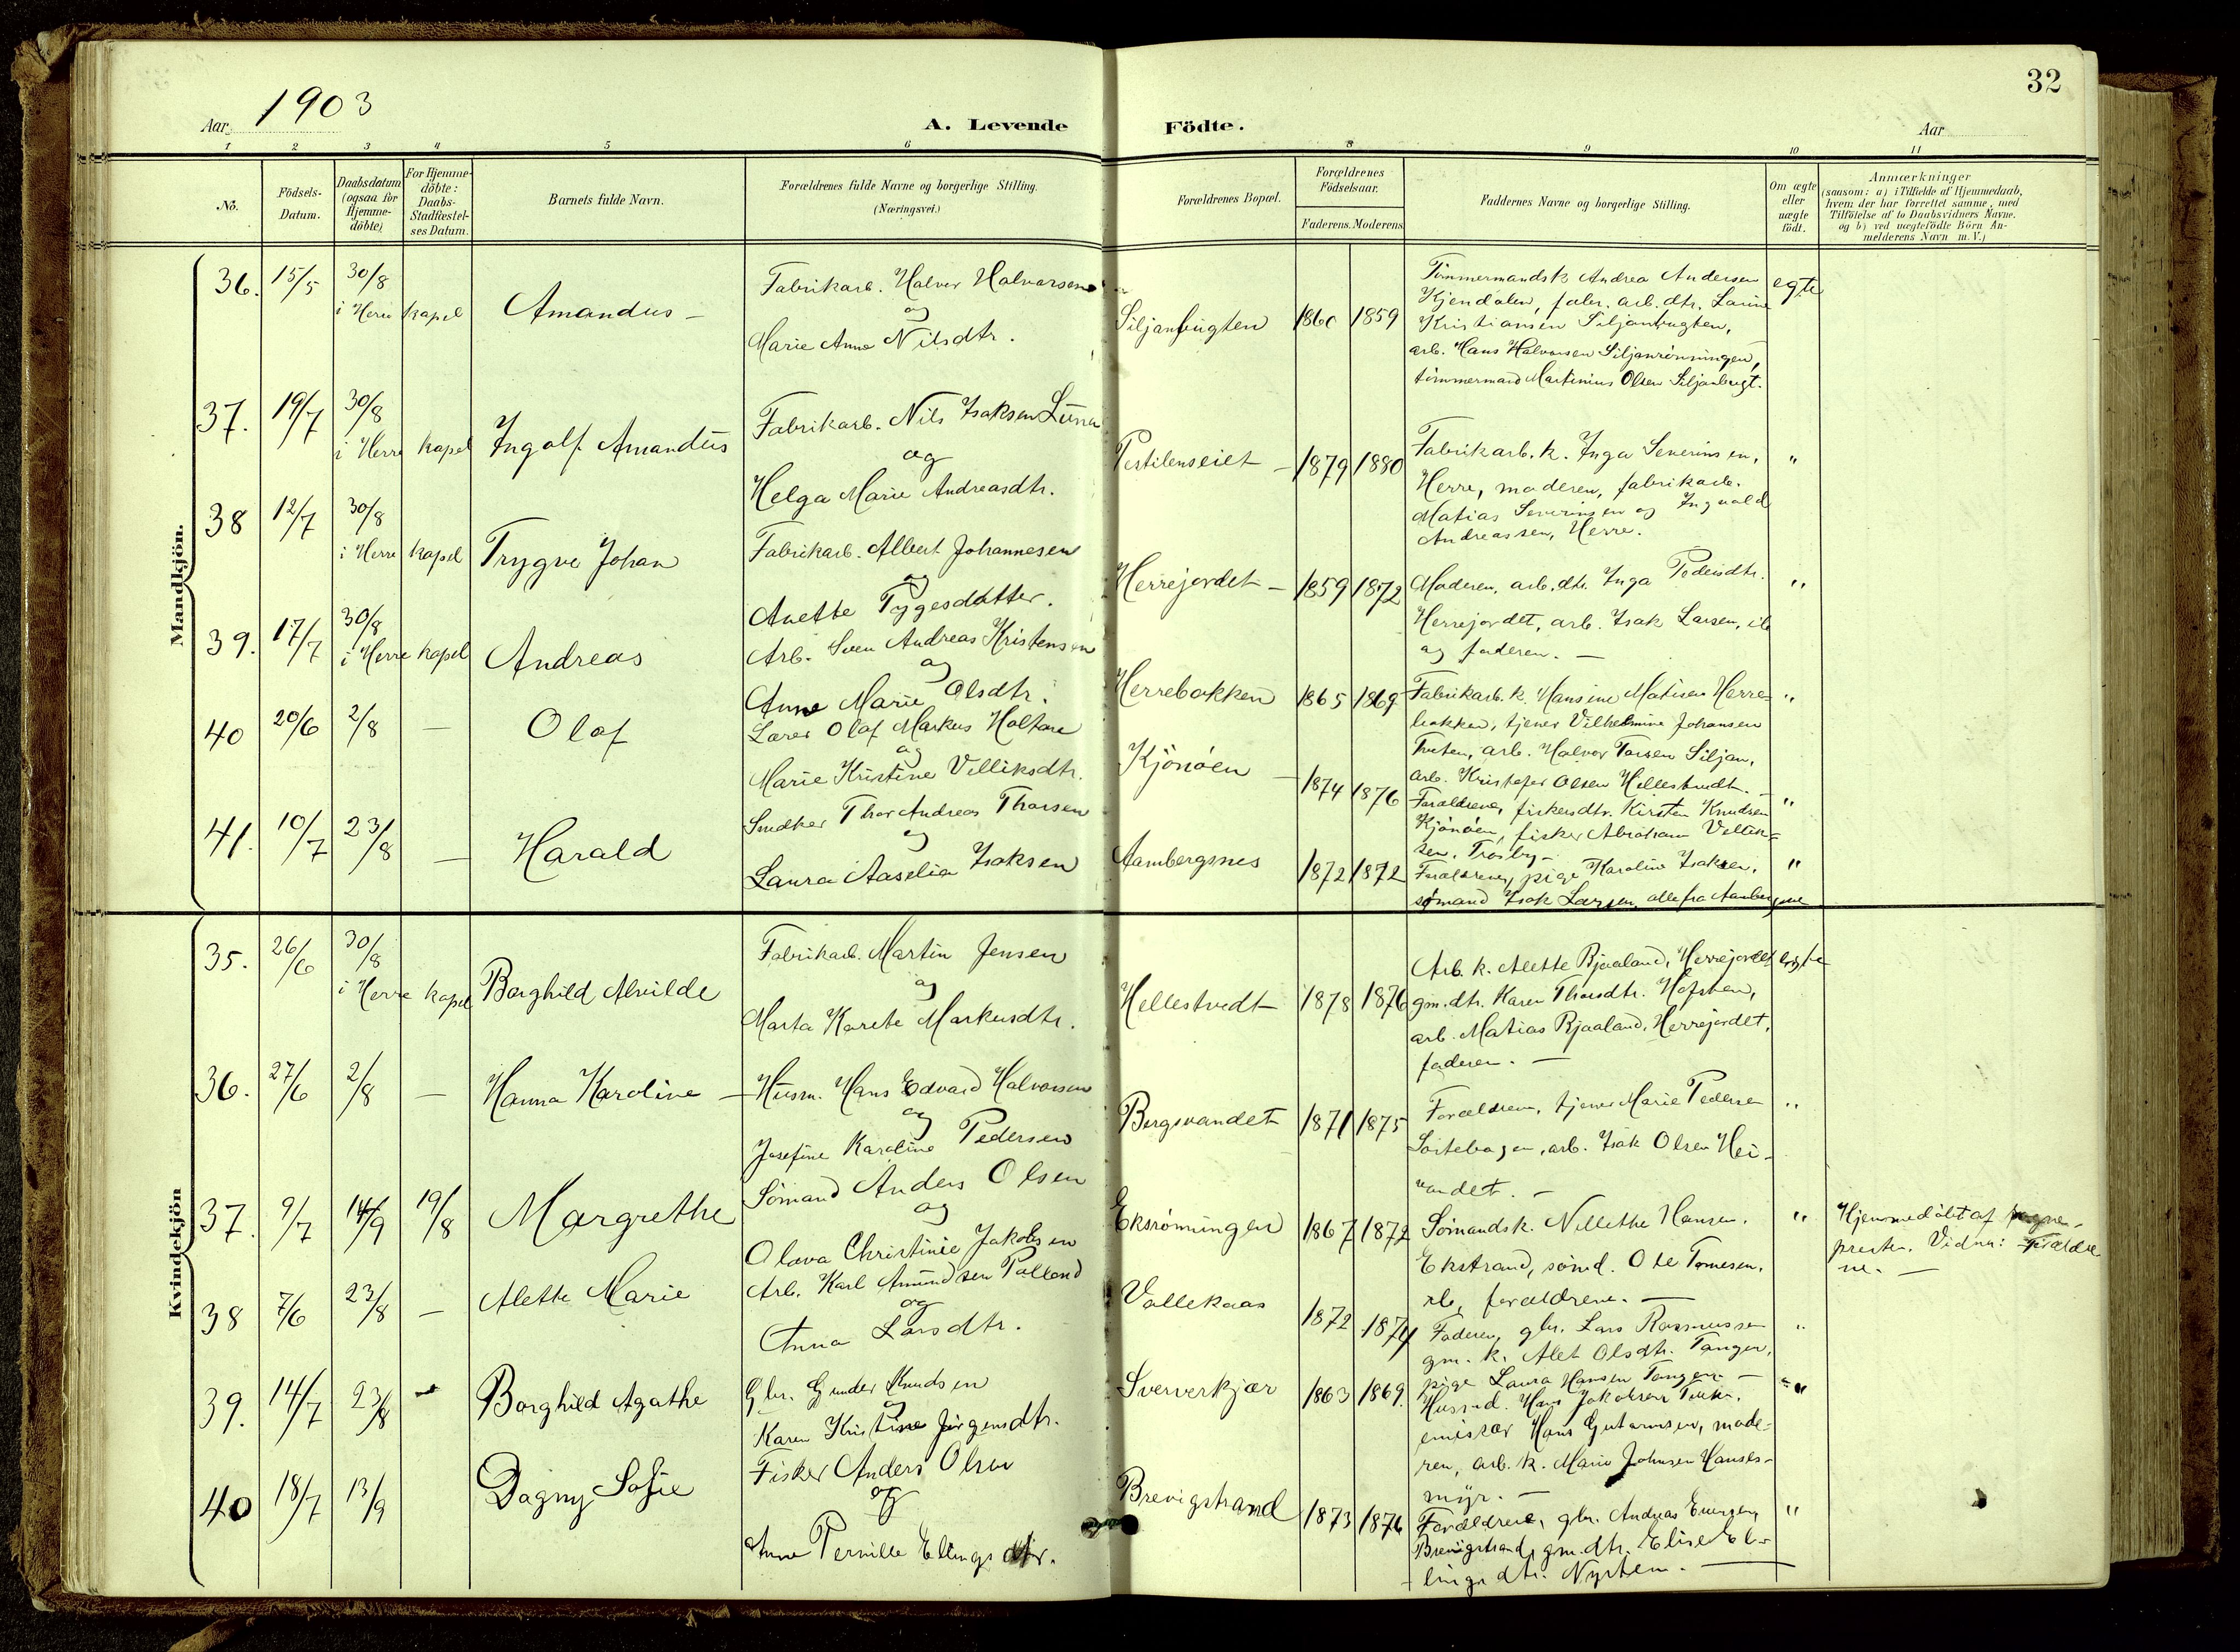 32
Aar 1903
A. Levende Födte.
Aar
1 2 3 4 5 6 8 9 10 11
No.
Födsels-Datum.
Daabsdatum (ogsaa for Hjemme-döbte)
For Hjemme-döbte: Daabs-Stadfæstel-ses Datum.
Barnets fulde Navn.
Forældrenes fulde Navne og borgerlige Stilling.
(Næringsvei.)
Forældrenes Bopæl.
Forældrenes Födselsaar.
Faderens. Moderens
Faddernes Navne og borgerlige Stilling.
Om ægte eller uægte födt.
Anmærkninger
(saasom: a) i Tilfælde af Hjemmedaab,
hvem der har forrettet samme, med
Tilföielse af to Daabsvidners Navne.
og b) ved uægtefödte Börn An-
melderens Navn m. V.)
Mandkjön.
36. 15/5 30/8 i Herre kapel
Amandus -
Fabrikarb. Halvor Halvorsen
og
Marie Anne Nilsdtr.
Siljanbugten 1860 1859
Tömmermandsk Andrea Andersen
Kjendalen, fabr. arb. dtr. Laurine
Kristiansen Siljanbugten,
arb. Hans Halvorsen Siljanrönningen,
tömmermand Martinius Olsen Siljanbugt.
egte
37. 19/7 30/8 i Herre kapel
Ingolf Amandus
Fabrikarb. Nils Isaksen Luna
og
Helga Marie Andreasdtr.
Pestilenseiet - 1879 1880
Fabrikarb. k. Inga Severinsen,
Herre, moderen, fabrikarb.
Matias Severinsen og Ingvald
Andreassen, Herre.
"
38 12/7 30/8 i Herre kapel
Trygve Johan
Fabrikarb. Albert Johannesen
og
Anette Tygesdatter.
Herrejordet - 1859 1872
Moderen, arb. dtr. Inga Pedersdtr.
Herrejordet, arb. Isak Larsen, ib
og faderen. -
"
39. 17/7 30/8 i Herre kapel
Andreas
Arb. Sven Andreas Kristensen
og
Anne Marie Olsdtr.
Herrebakken 1865 1869
Fabrikarb. k. Hansine Matisen Herre-
bakken, tjener Vilhelmine Johansen
Tveten, arb. Halvor Torsen Siljan,
arb. Kristofer Olsen Hellestvedt. -
"
40 20/6 2/8 -
Olaf
Lærer Olaf Markus Holtane
og
Marie Kristine Velliksdtr.
Kjönöen - 1874 1876
Forældrene, fiskersdtr. Kirsten Knudsen
Kjönöen, fisker Abraham Vellik-
sen, Trosby -
"
41. 10/7 23/8 -
Harald
Snedker Thor Andreas Thorsen
og
Laura Aaselia Isaksen
Aambergsnes 1872 1872
Forældrene, pige Karoline Isaksen,
sömand Isak Larsen, alle fra Aambergsnes
"
Kvindekjön
35. 26/6 30/8 i Herre kapel
Borghild Alvilde
Fabrikarb. Martin Jensen
og
Marta Karete Markusdtr.
Hellestvedt 1878 1876
Arb. k. Alette Bjaaland, Herrejordet
gm. dtr. Karen Thorsdtr.
arb. Matias Bjaaland, Herrejordet,
faderen. -
egte
36. 27/6 2/8 -
Hanna Karoline -
Husm. Hans Edvard Halvorsen
og
Josefine Karoline Pedersen
Bergsvandet 1871 1875
Forældrene, tjener Marie Pedersen
arb. Isak Olsen Hei-
vandet. -
"
37. 9/7 14/9 19/8
Margrethe
Sömand Anders Olsen
og
Olava Christinie Jakobsen
Eksrönningen 1867 1872
Sömandsk. Nillethe Hansen.
Ekstrand, sömd. Ole Tomesen,
ib, forældrene. -
"
Hjemmedöbt af sogne-
presten. Vidner: Forældre-
ne. -
38 7/6 23/8 -
Alette Marie
Arb. Karl Amundsen Valland
og
Anna Larsdtr.
Vallekaas 1872 1874
Faderen, gbr. Lars Rasmussen
gm. k. Alet Olsdtr. Tangen,
pige Laura Hansen Tangen -
"
39. 14/7 23/8 -
Borghild Agathe
Gbr. Gunder Knudsen
og
Karen Kristine Jörgensdtr.
Sververkjær 1863 1869.
Husmd. Hans Jakobsen
emissær Hans Gutormsen, mode-
ren, arb. k. Marie Johnsen Hanses-
myr. -
"
40 18/7 13/9
Dagny Sofie
Fisker Anders Olsen
og
Anne Pernille Ellingsdtr.
Brevigstrand 1873 1876
Forældrene, gbr. Andreas
Brevigstrand, gm. dtr. Elise El-
lingsdtr. Nystem. -
"